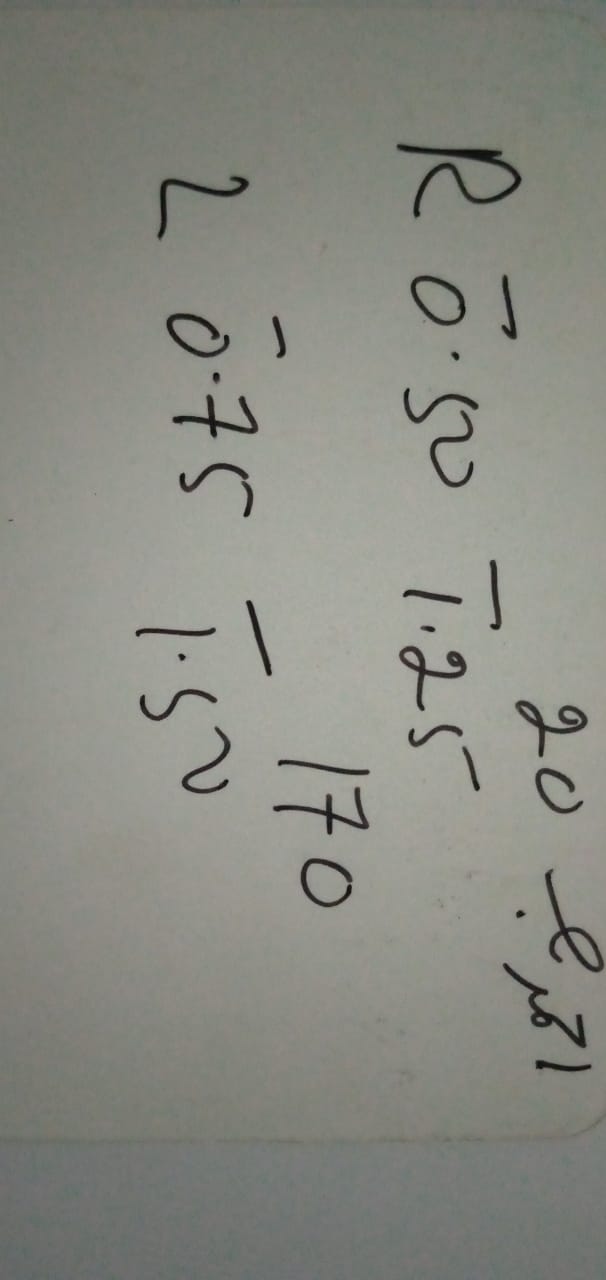 R -0.50 -1.25 20
L -0.75 -1.50 170